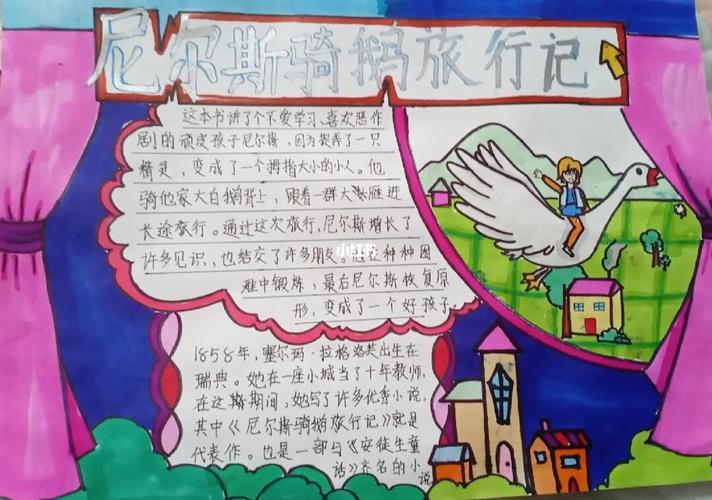 尼尔斯骑鹅旅行记
这本书讲了个不爱学习、喜欢恶作
剧的顽皮孩子尼尔斯，因为捉弄了一只
精灵，变成了一个拇指大小的小人。他
骑他家大白鹅背上，跟着一群大雁进
长途旅行。通过这次旅行，尼尔斯增长了
许多见识，也结交了许多朋友。种种困
难中锻炼，最后尼尔斯恢复原
形，变成了一个好孩子
小红书
1858年，塞尔玛·拉格洛芙出生在
瑞典。她在一座小城当了十年教师，
在这期间，她写了许多优秀小说，
其中《尼尔斯骑鹅旅行记》就是
代表作。也是一部与《安徒生童
话》齐名的小说